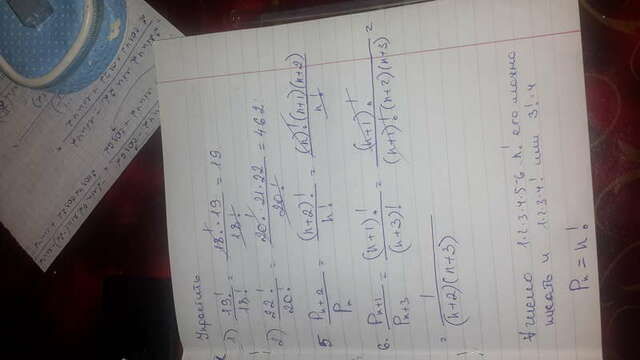 Упростить
1) 19!/18! = 18!·19/18! = 19
2) 22!/20! = 20!·21·22/20! = 462
5 Pₙ₊₂/Pₙ = (n+2)!/n! = (n)!(n+1)(n+2)/n!
6. Pₙ₊₁/Pₙ₊₃ = (n+1)!/(n+3)! = (n+1)!/(n+1)!(n+2)(n+3) =
= 1/(n+2)(n+3)
число 1·2·3·4·5·6 n! его можно
писать и 1·2·3·4! или 3!·4
Pₙ = n!